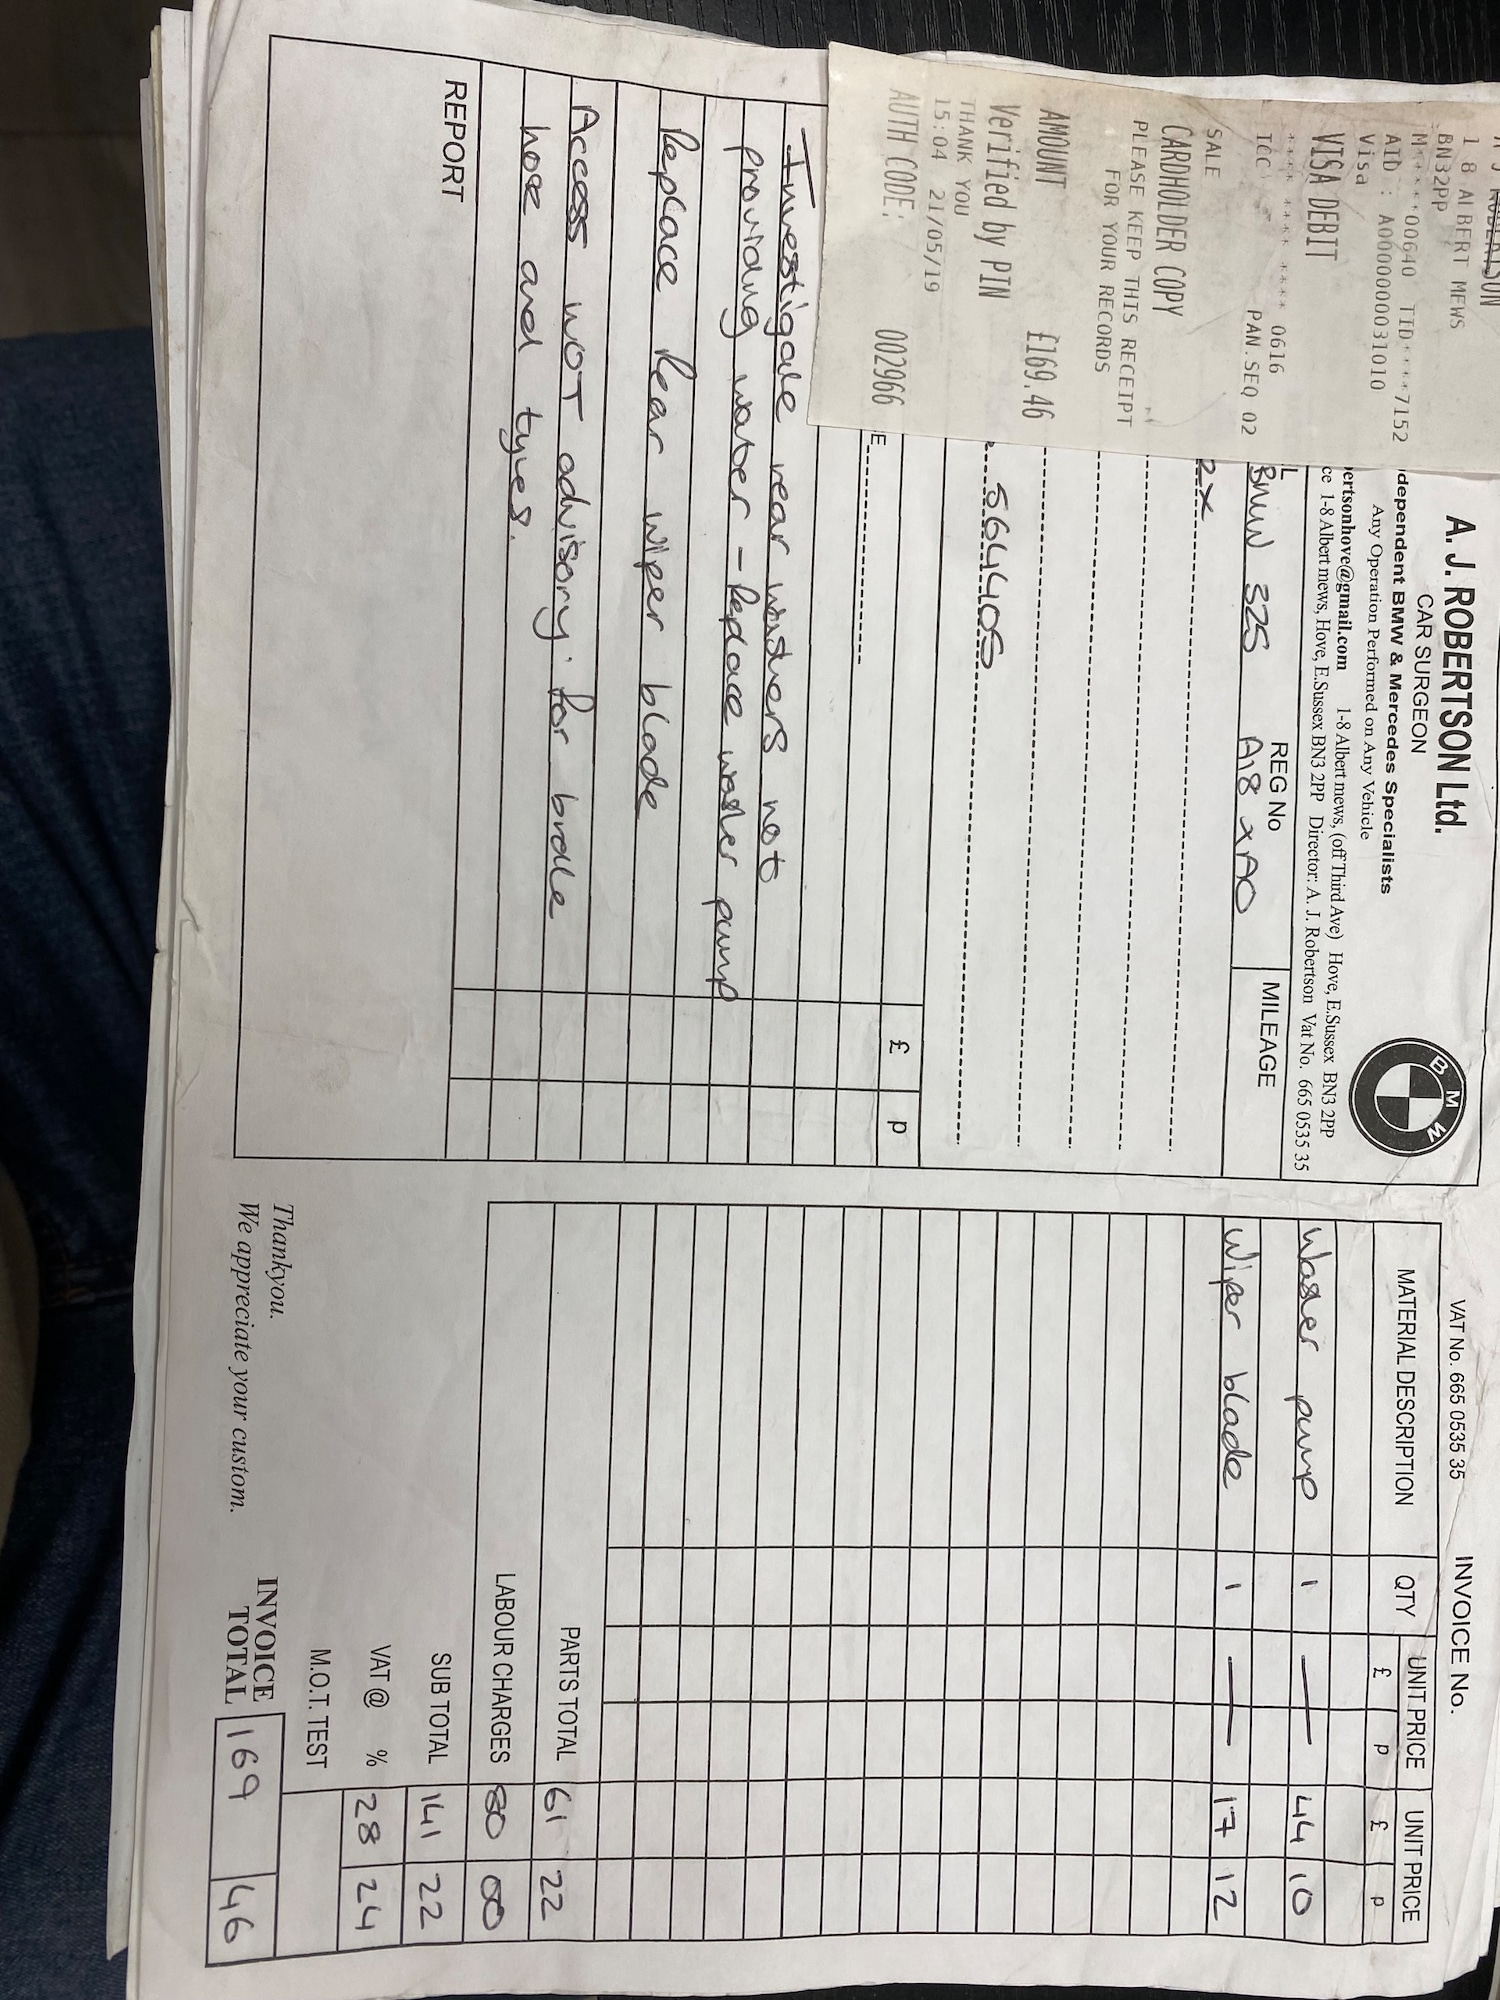 1 8 ALBERT MEWS
BN32PP
M****00640 TID****7152
AID : A0000000031010
Visa
VISA DEBIT
**** **** **** 0616
ICC PAN.SEQ 02
SALE
CARDHOLDER COPY
PLEASE KEEP THIS RECEIPT
FOR YOUR RECORDS
AMOUNT £169.46
Verified by PIN
THANK YOU
15:04 21/05/19
AUTH CODE: 002966
A. J. ROBERTSON Ltd.
CAR SURGEON
dependent BMW & Mercedes Specialists
Any Operation Performed on Any Vehicle
ertsonhove@gmail.com 1-8 Albert mews, (off Third Ave) Hove, E.Sussex BN3 2PP
ce 1-8 Albert mews, Hove, E.Sussex BN3 2PP Director: A. J. Robertson Vat No. 665 0535 35
BMW
L REG No MILEAGE
BMW 325 A18 XAO
564405
E
£ p
Investigate rear washers not
providing water - Replace washer pump
Replace Rear wiper blade
Access MOT advisory for brake
hose and tyres.
REPORT
VAT No. 665 0535 35 INVOICE No.
MATERIAL DESCRIPTION QTY UNIT PRICE UNIT PRICE
£ p £ p
Washer pump 1 — — 44 10
Wiper blade 1 — — 17 12
PARTS TOTAL 61 22
LABOUR CHARGES 80 00
SUB TOTAL 141 22
VAT @ % 28 24
M.O.T. TEST
INVOICE TOTAL 169 46
Thankyou.
We appreciate your custom.